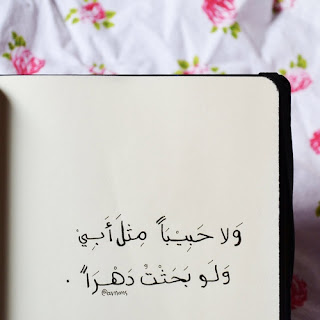 وَلا حَبِيْبَاً مِثلَ أَبِيْ
وَلَو بَحَثْتْ دَهْرَاً .